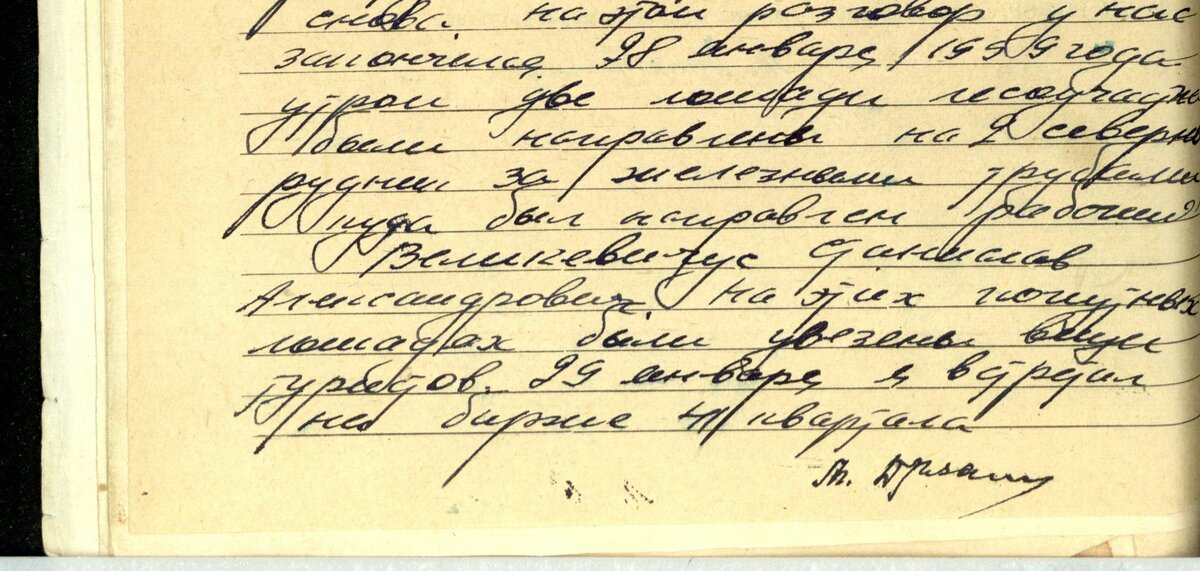 снова. на этом разговор у нас
закончился. 28 января 1959 года
утром две лошади лесоучастка
были направлены на 2 северный
рудник за железными трубами
туда был направлен рабочий
Великевичус Станислав
Александрович. на этих попутных
лошадях были увезены вещи
туристов. 29 января я встретил
на бирже 41 квартала